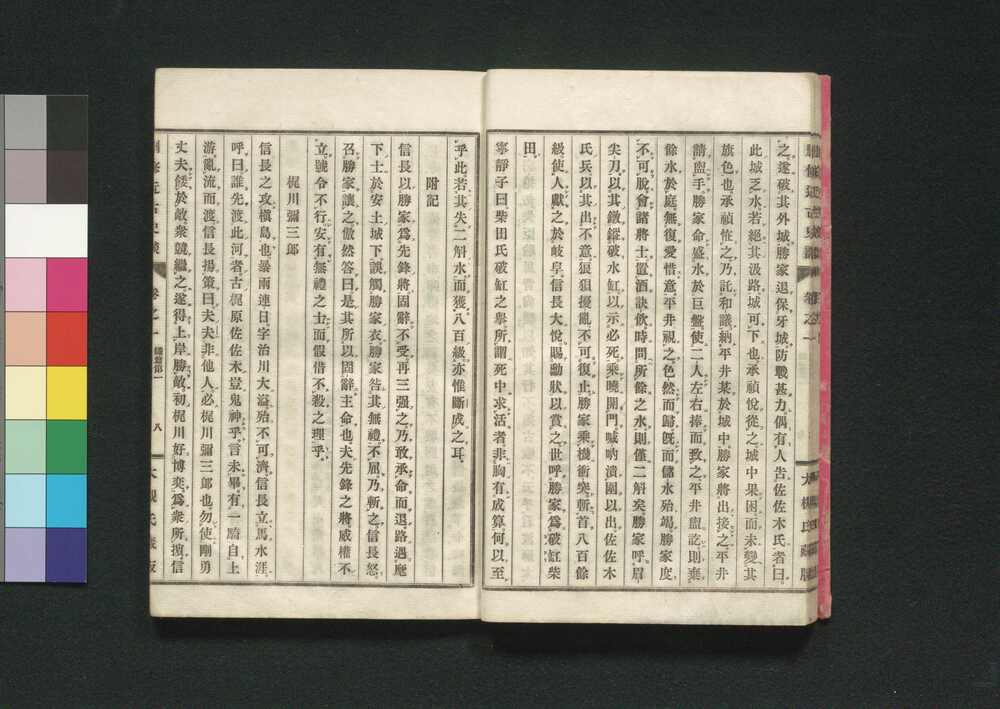 之遂破其外城勝家退保牙城防戰甚力偶有人吿佐佐木氏者曰
此城乏水若絕其汲路城可下也承禎悅從之城中果困而未變其
旗色也承禎恠之乃託和議納平井某於城中勝家將出接之平井
請盥手勝家命盛水於巨盤使二人左右捧而致之平井盥訖則棄
餘水於庭無復愛惜意平井視之色然而歸旣而儲水殆竭勝家度
不可脫會諸將士置酒訣飮時問所餘之水則僅二斛矣勝家呼眉
尖刀以其鐓縱破水缸以示必死乘曉開門喊吶潰圍以出佐佐木
氏兵以其出不意狼狽擾亂不可復止勝家乘機衝突斬首八百餘
級使人獻之於岐阜信長大悅賜勳狀以賞之世呼勝家爲破缸柴
田
寧靜子曰柴田氏破缸之擧所謂死中求活者非胸有成算何以至
乎此若其失二斛水而獲八百級亦惟斷成之耳
附記
信長以勝家爲先鋒將固辭不受再三强之乃敢承命而退路遇麾
下士於安土城下誤觸勝家衣勝家咎其無禮不屈乃斬之信長怒
召勝家讓之傲然答曰是其所以固辭主命也夫先鋒之將威權不
立號令不行安有無禮之士而假借不殺之理乎
梶川彌三郎
信長之攻槇島也暴雨連日宇治川大溢殆不可濟信長立馬水涯
呼曰誰先渡此河者古梶原佐佐木豈鬼神乎言未畢有一騎自上
游亂流而渡信長揚策曰夫夫非他人必梶川彌三郎也勿使剛勇
丈夫餒於敵衆競繼之遂得上岸勝敵初梶川好博奕爲衆所擯信
卷之一
八